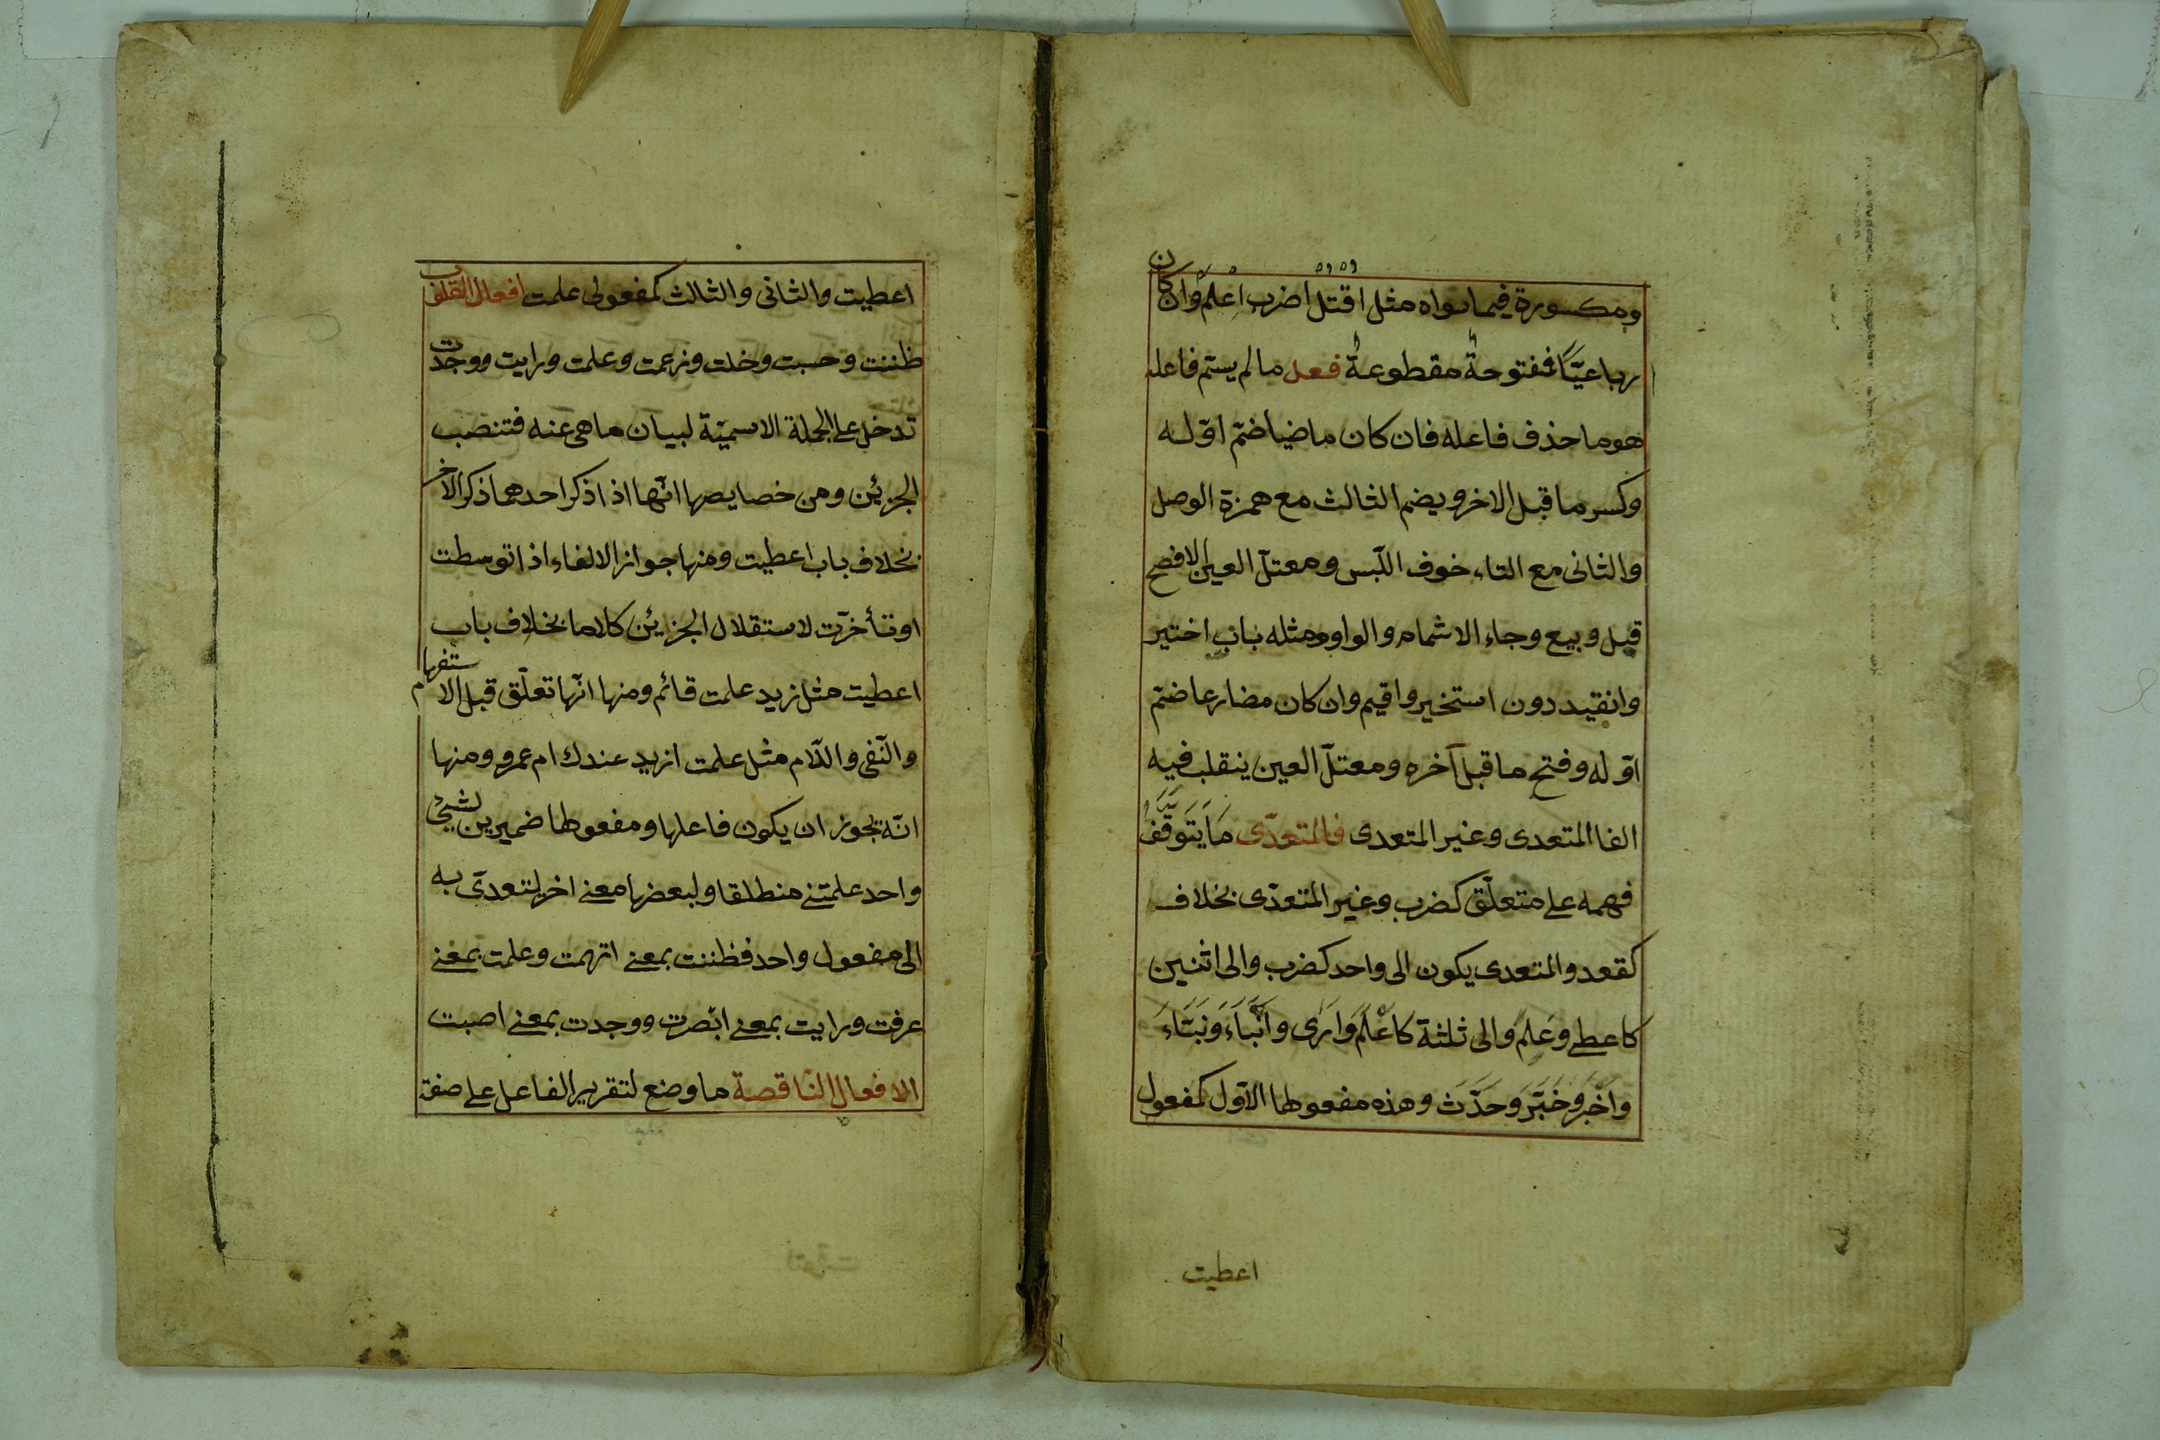 ومكسورة فيما سواه مثل اقتل اضرب اعلم وان كان
رباعيّا فمفتوحة مقطوعة فعل ما لم يسمّ فاعله
هو ما حذف فاعله فان كان ماضيا ضمّ اوّله
وكسر ما قبل الاخر ويضم الثالث مع همزة الوصل
والثانى مع التاء خوف اللّبس ومعتلّ العين الافصح
قيل وبيع وجاء الاشمام والواو ومثله باب اختير
وانقيد دون استخير واقيم وان كان مضارعا ضمّ
اوّله وفتح ما قبل آخره ومعتلّ العين ينقلب فيه
الفا المتعدى وغير المتعدى فالمتعدّى مَا يَتَوَقَّفُ
فهمه على متعلّق كضرب وغير المتعدّى بخلاف
كقعد والمتعدى يكون الى واحد كضرب والى اثنين
كاعطى وعَلِمَ والى ثلثة كاَعْلَمَ وَاَرَى واَنْبَاَءَ وَنَبَّاءَ
واَخْبَرَ وَخَبَّرَ وَحَدَّثَ وهذه مفعولها الاوّل كمفعول
اعطيت
اعطيت والثانى والثالث كمفعولى علمت افعال القلوب
ظننت وحسبت وخلت وزعمت وعلمت ورايت ووجدت
تدخل على الجملة الاسميّة لبيان ما هى عنه فتنصب
الجزئين ومن خصايصها انّها اذا ذكر احدهما ذكر الاخر
بخلاف باب اعطيت ومنها جواز الالغاء اذا توسطت
او تأخرّت لاستقلال الجزئين كلاما بخلاف باب
اعطيت مثل زيد علمت قائم ومنها انّها تعلّق قبل الاستفهام
والنّفى واللّام مثل علمت ازيد عندك ام عمرو ومنها
انّه يجوز ان يكون فاعلها ومفعولها ضميرين لشىء
واحد علمتنى منطلقا ولبعضها معنى اخر يتعدّى به
الى مفعول واحد فظننت بمعنى اتهمت وعلمت بمعنى
عرفت ورايت بمعنى ابصرت ووجدت بمعنى اصبت
الافعال النّاقصة ما وضع لتقرير الفاعل على صفة